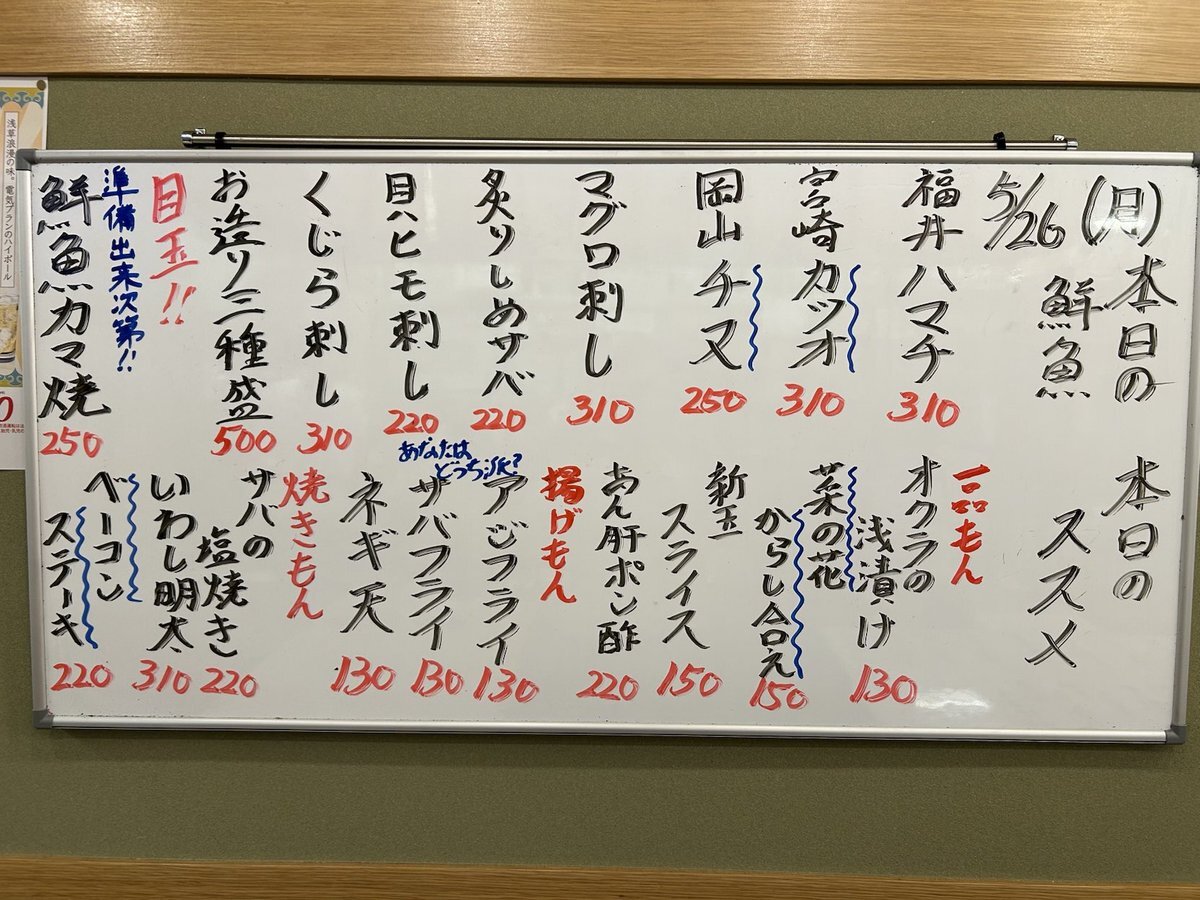 5/26(月)
本日の
鮮魚
福井ハマチ
310
宮崎カツオ
310
岡山チヌ
250
マグロ刺し
310
炙りしめサバ
220
貝ヒモ刺し
220
くじら刺し
310
お造り三種盛
500
目玉!!
準備出来次第!!
鮮魚カマ焼
250
本日の
ススメ
一品もん
オクラの
浅漬け
130
菜の花
からし合え
150
新玉
スライス
150
あん肝ポン酢
220
揚げもん
あなたは
どっち派?
アジフライ
130
サバフライ
130
ネギ天
130
焼きもん
サバの
塩焼き
220
いわし明太
310
ベーコン
ステーキ
220
浅草浪漫の味。電気ブランのハイボール